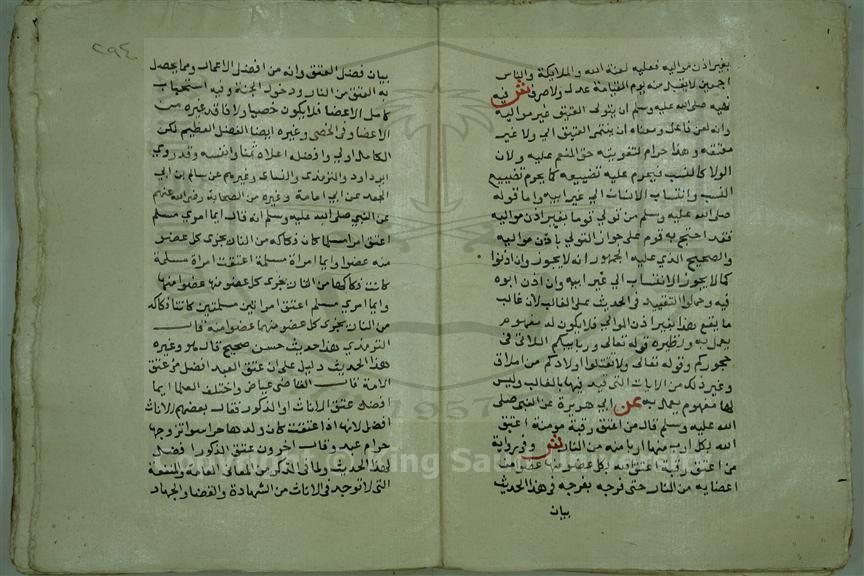 بغير اذن مواليه فعليه لعنة الله والملايكة والناس
اجمعين لا يقبل منه يوم القيامة عدل ولا صرف ش فيه
نهيه صلى الله عليه وسلم ان يتولى العتيق غير مواليه
وانه لعن فاعل ومعناه ان ينتمى العتيق الي ولا غير
معتقه وهذا حرام لتفويته حق المنعم عليه ولان
الولا كالنسب فيحرم عليه تضييعه كما يحرم تضييع
النسب وانتساب الانسان الي غير ابيه واما قوله
صلى الله عليه وسلم من تولي قوما بغير اذن مواليه
فقد احتج به قوم على جواز التولي باذن مواليه
والصحيح الذي عليه الجمهور انه لا يجوز وان اذنوا
كما لا يجوز الانتساب الي غير ابيه وان اذن ابوه
فيه وحملوا التقييد في الحديث على الغالب لان غالب
ما يقع هذا بغير اذن الموالي فلا يكون له مفهوم
يعمل به ونظيره قوله تعالى وربايبكم اللاتى فى
حجوركم وقوله تعالى ولا تقتلوا اولادكم من املاق
وغير ذلك من الايات التى قيد فيها بالغالب وليس
لها مفهوم يعمل به عن ابي هريرة عن النبي صلى
الله عليه وسلم قال من اعتق رقبة مومنة اعتق
الله بكل ارب منها اربا منه من النار ش وفي رواية
من اعتق رقبة اعتق الله بكل عضو منها عضوا من
اعضايه من النار حتى فرجه بفرجه في هذا الحديث
بيان
٢٩٤
بيان فضل العتق وانه من افضل الاعمال ومما يحصل
به العتق من النار ودخول الجنة وفيه استحباب
كامل الاعضا فلا يكون خصيا ولا فاقد غيره من
الاعضا وفى الخصى وغيره ايضا الفضل العظيم لكن
الكامل اولي وافضله اعلاه ثمنا وانفسه وقد روي
ابو داود والترمذى والنساى وغيرهم عن سالم بن ابي
الجعد عن ابي امامة وغيره من الصحابة رضى الله عنهم
عن النبي صلى الله عليه وسلم انه قال ايما امرئ مسلم
اعتق امرا مسلما كان فكاكه من النار يجزى كل عضو
منه عضوا وايما امراة مسلمة اعتقت امراة مسلمة
كانت فكاكها من النار يجزى كل عضو منها عضوا منها
وايما امرئ مسلم اعتق امراتين مسلمتين كانتا فكاكه
من النار يجزى كل عضو منهما عضوا منه قال
الترمذي هذا حديث حسن صحيح قال هو وغيره
هذا الحديث دليل على ان عتق العبد افضل من عتق
الامة قال القاضى عياض واختلف العلما ايما
افضل عتق الاناث او الذكور فقال بعضهم الاناث
افضل لانها اذا عتقت كان ولدها حرا سوا تزوجها
حر او عبد وقال اخرون عتق الذكور افضل
لهذا الحديث ولما فى الذكر من المعانى العامة والمنفعة
التى لا توجد فى الاناث من الشهادة والقضا والجهاد
1957
Copyright © King Saud University